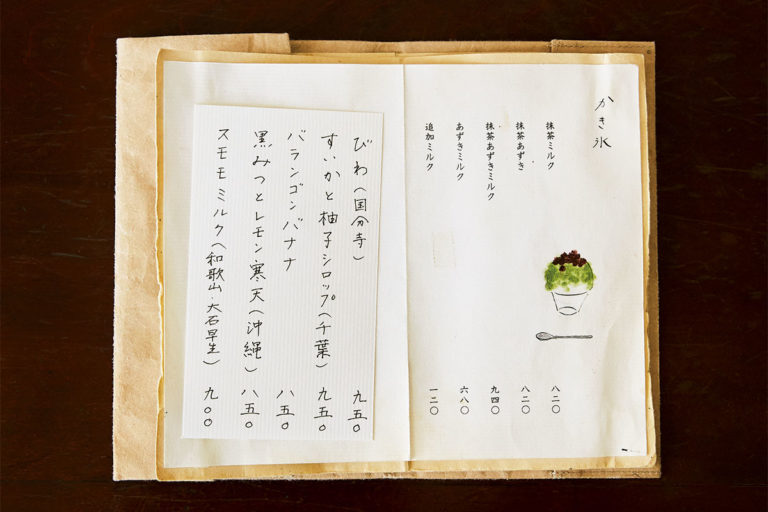 かき氷
抹茶ミルク 八二〇
抹茶あずき 八二〇
抹茶あずきミルク 九四〇
あずきミルク 六八〇
追加ミルク 一二〇
びわ(国分寺) 九五〇
すいかと柚子シロップ(千葉) 九五〇
バランゴンバナナ 八五〇
黒みつとレモン寒天(沖縄) 八五〇
スモモミルク(和歌山・大石早生) 九〇〇